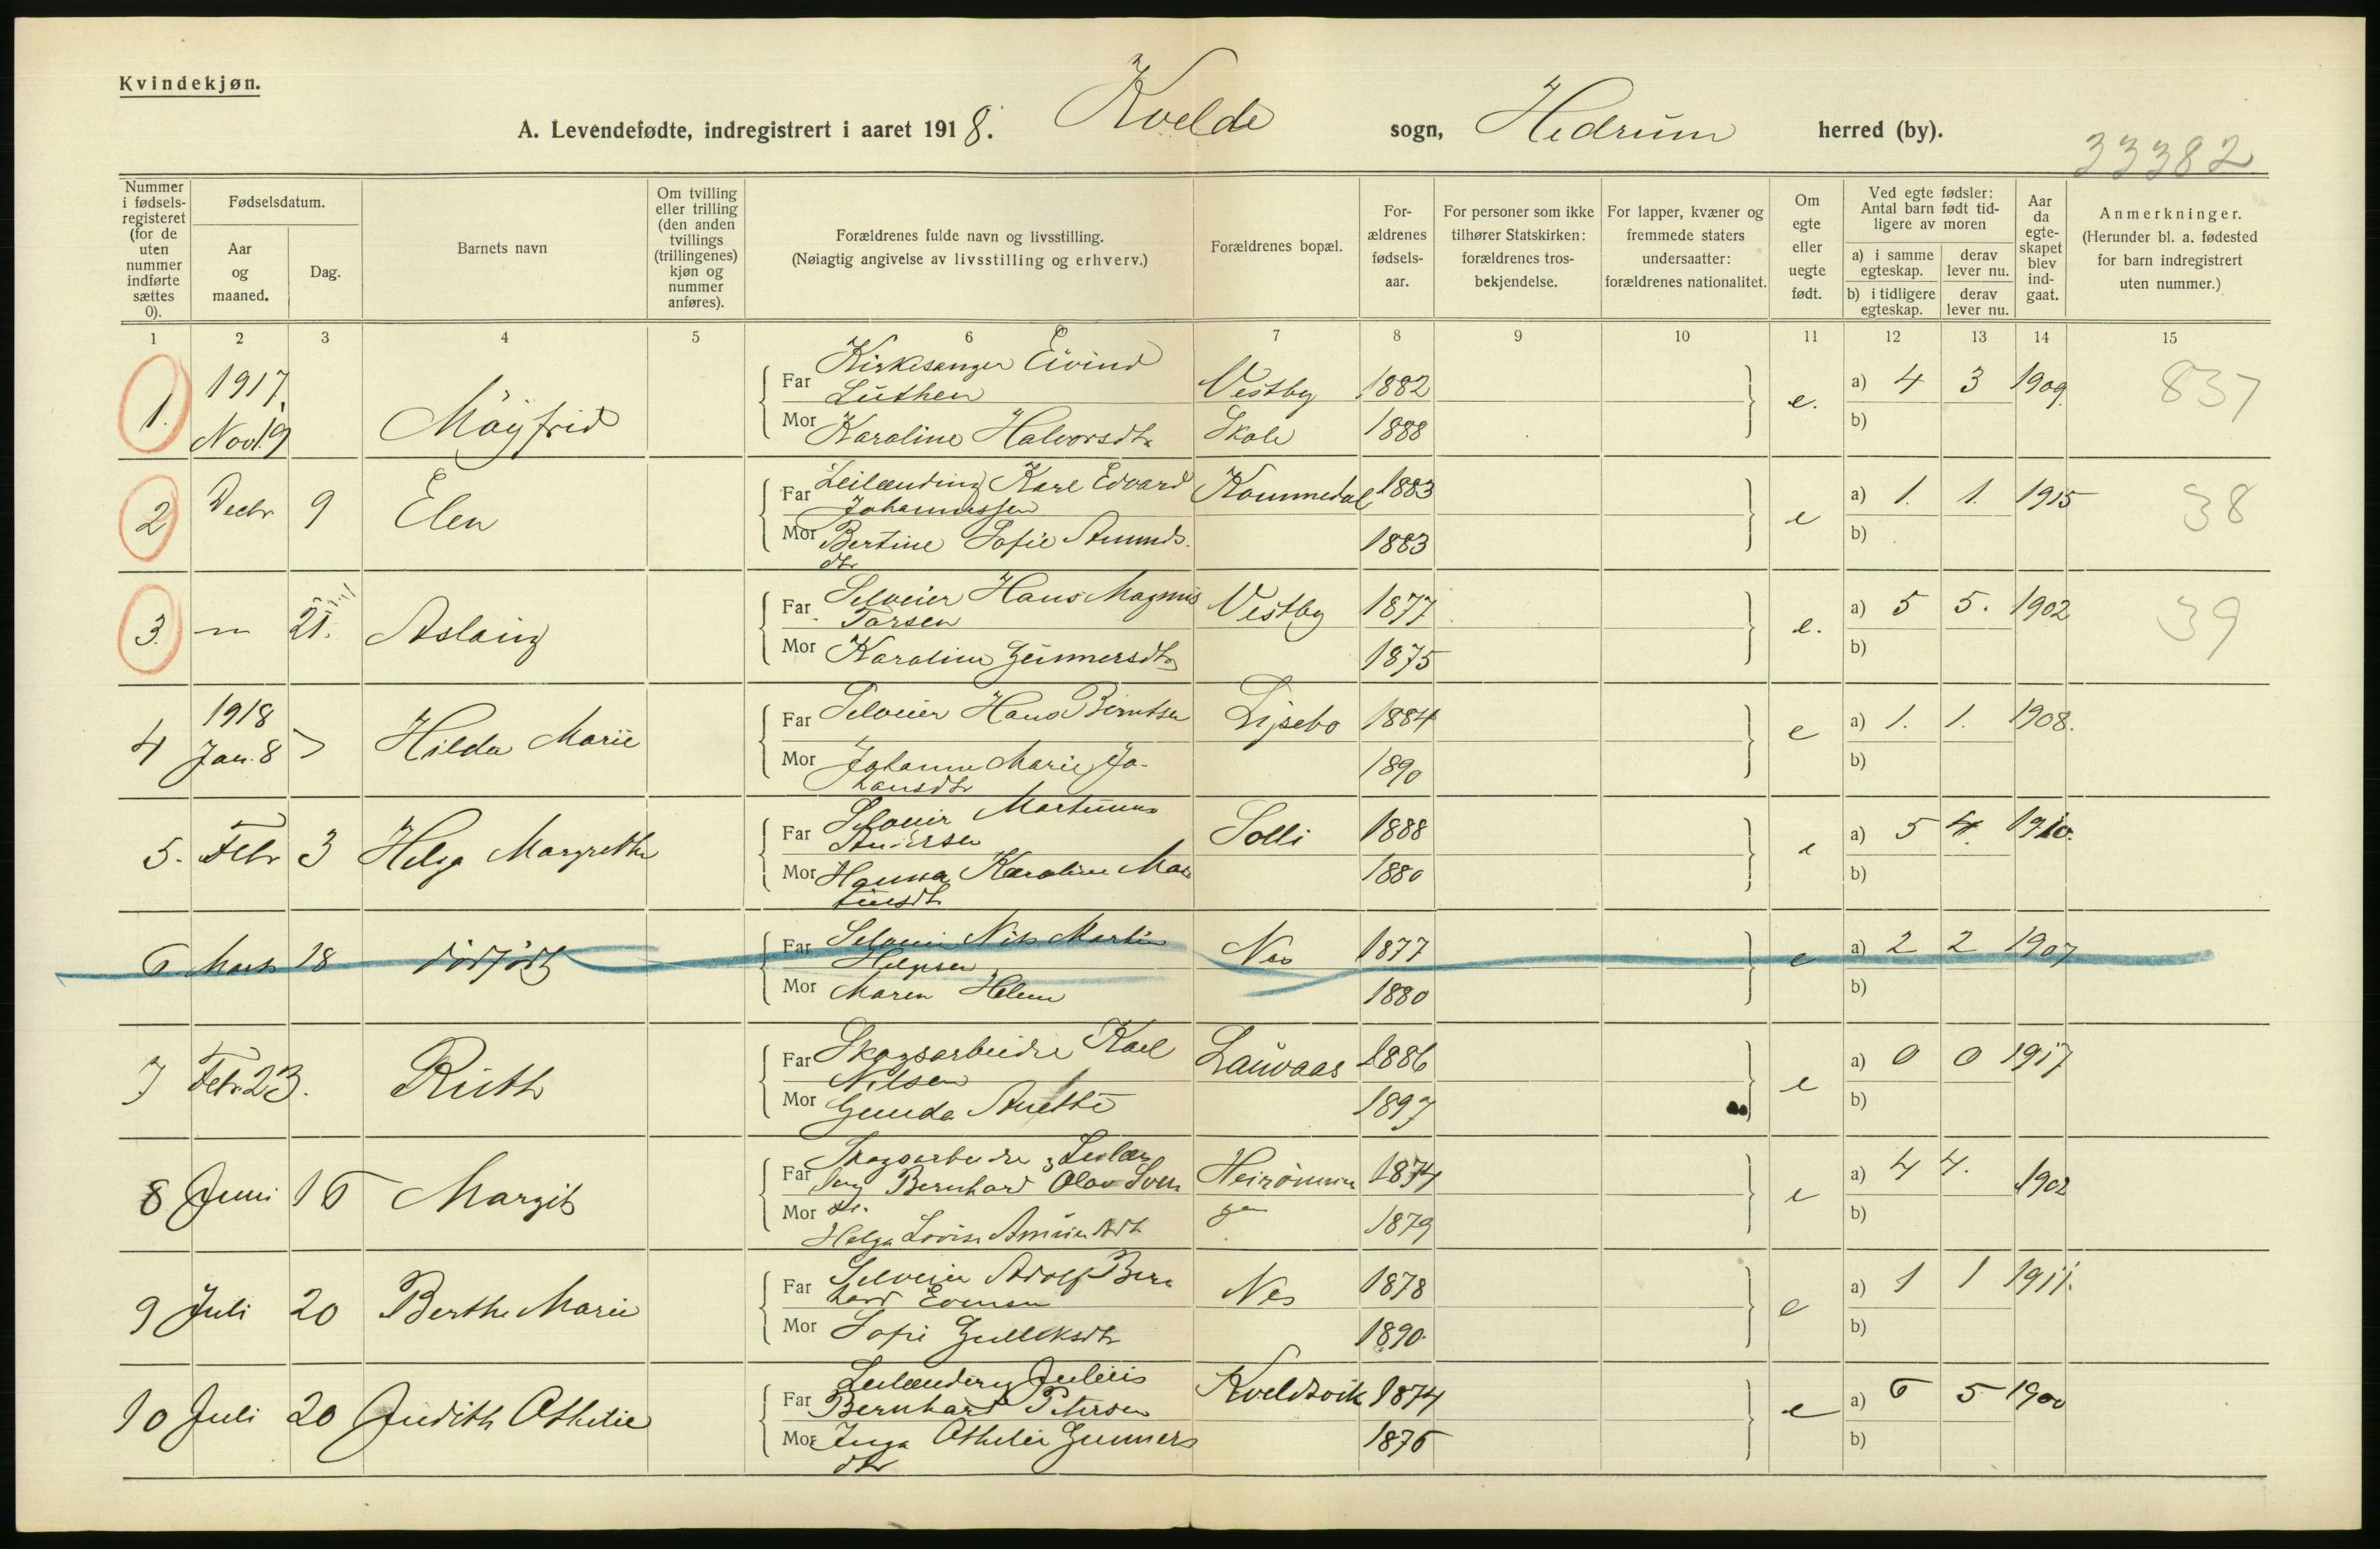 Kvindekjøn.
A. Levendefødte, indregistrert i aaret 1918. Kvelde sogn, Hedrum herred (by).
33382
Nummer i fødsels-registeret (for de uten nummer indførte sættes 0).
Fødselsdatum.
Aar og maaned.
Dag.
Barnets navn
Om tvilling eller trilling (den anden tvillings (trillingenes) kjøn og nummer anføres).
Forældrenes fulde navn og livsstilling.
(Nøiagtig angivelse av livsstilling og erhverv.)
Forældrenes bopæl.
For-ældrenes fødsels-aar.
For personer som ikke tilhører Statskirken: forældrenes tros-bekjendelse.
For lapper, kvæner og fremmede staters undersaatter: forældrenes nationalitet.
Om egte eller uegte født.
Ved egte fødsler: Antal barn født tid-ligere av moren
a) i samme egteskap. derav lever nu.
b) i tidligere egteskap. derav lever nu.
Aar da egte-skapet blev ind-gaat.
Anmerkninger.
(Herunder bl. a. fødested for barn indregistrert uten nummer.)
1 2 3 4 5 6 7 8 9 10 11 12 13 14 15
1. 1917, Novb. 19 Möyfrid
Far Kirkesanger Eivind
Luthen Vestby 1882 e. a) 4 3 1909 837
Mor Karoline Halvorsdtr Skole 1888 b)
2 Decbr 9 Elen
Far Leilænding Karl Edvard
Johannessen Kommedal 1883 e a) 1. 1. 1915 38
Mor Bertine Sofie Amunds-
dtr 1883 b)
3. — 21. Aslaug
Far Selveier Hans Magnus
Larsen Vestby 1877 e. a) 5 5. 1902 39
Mor Karoline Gunnersdtr 1875 b)
4 1918 Jan. 8 Hilda Marie
Far Selveier Hans Berntsen Lysebo 1884 e a) 1. 1. 1908.
Mor Johanne Marie Jo-
hansdtr 1890 b)
5. Febr 3 Helga Margrethe
Far Selveier Martinus
Andersen Solli 1888 e a) 5 4. 1910.
Mor Hanna Karoline Mar
tinsdtr 1880 b)
6 Mars 18 dødfødt
Far Selveier Nils Martin
Helgesen Nes 1877 e a) 2 2 1907
Mor Maren Helene 1880 b)
7 Febr. 23. Ruth
Far Skogsarbeider Karl
Nilsen Lauvaas 1886 e a) 0 0 1917
Mor Gunda Anette 1897 b)
8 Juni 16 Margit
Far Skogsarbeider & Leilæn
ding Bernhard Olav Sven 1874 e a) 4 4. 1902
Mor
Helga Lovise Amundsdtr 1879 b)
9 Juli 20 Berthe Marie
Far Selveier Adolf Bern
hard Evensen Nes 1878 e a) 1 1 1911.
Mor Sofie Gulliksdtr 1890. b)
10 Juli 20 Judith Othelie
Far Leilænding Julius
Bernhard Petersen Kveldsvik 1874 e a) 6 5 1900
Mor Inga Othelie Gunners
dtr 1876 b)